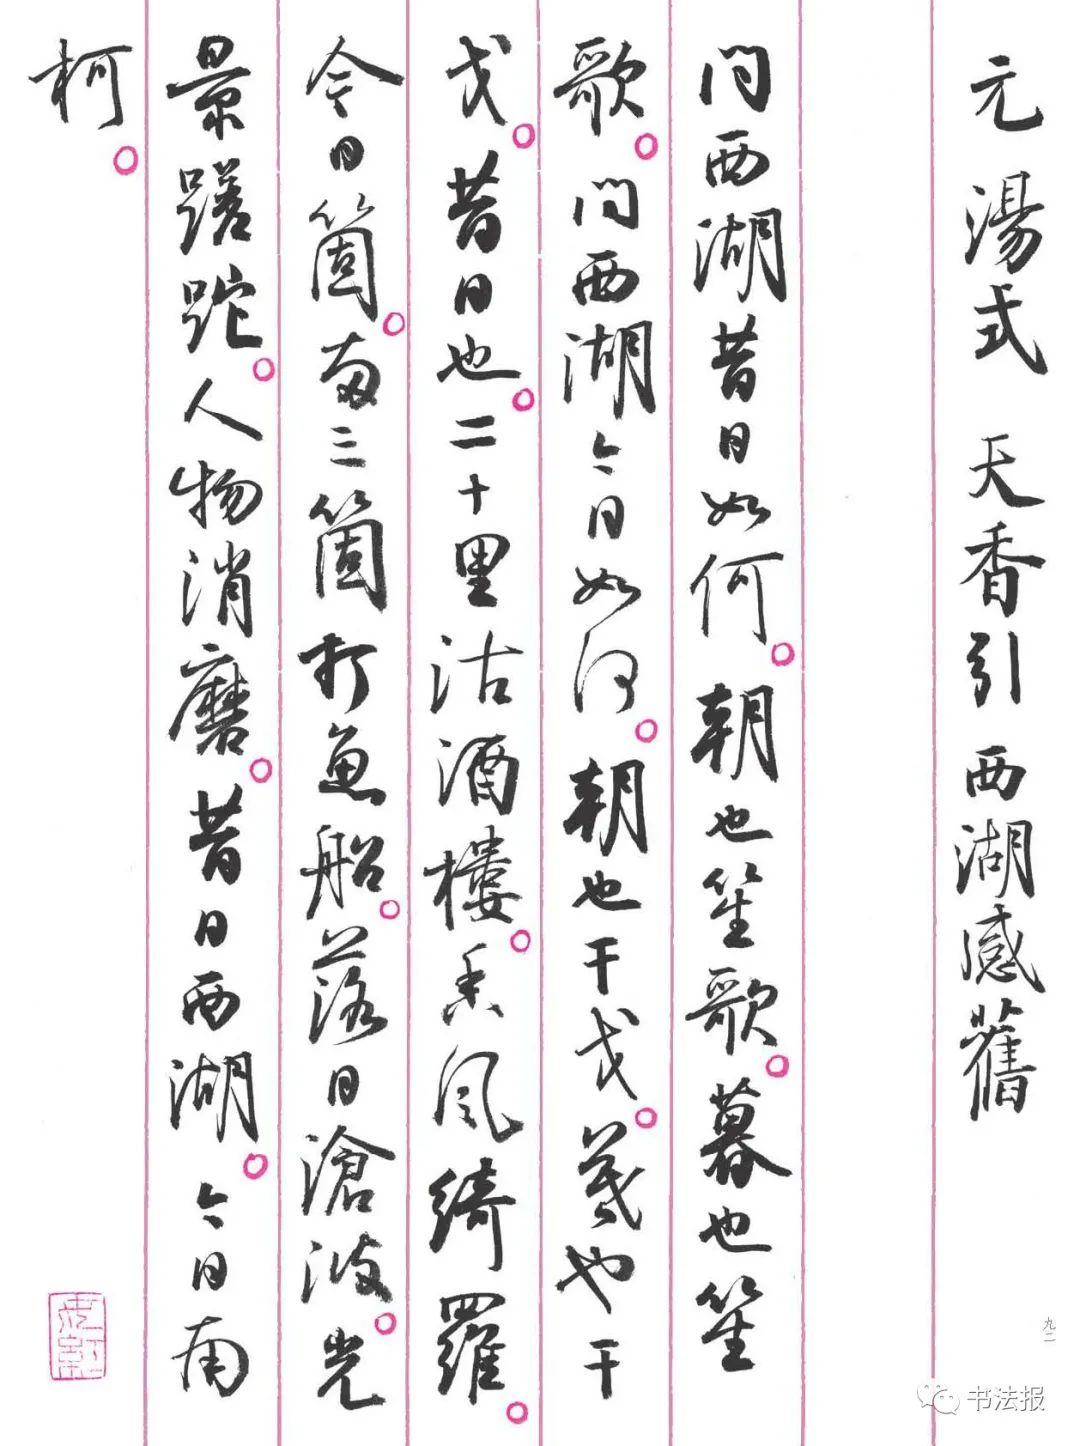 元湯式 天香引 西湖感舊
問西湖昔日如何。朝也笙歌。暮也笙
歌。問西湖今日如何。朝也干戈。暮也干
戈。昔日也。二十里沽酒樓。香風綺羅。
今日箇。兩三箇打魚船。落日滄波。光
景蹉跎。人物消磨。昔日西湖。今日南
柯。
九二
书法报